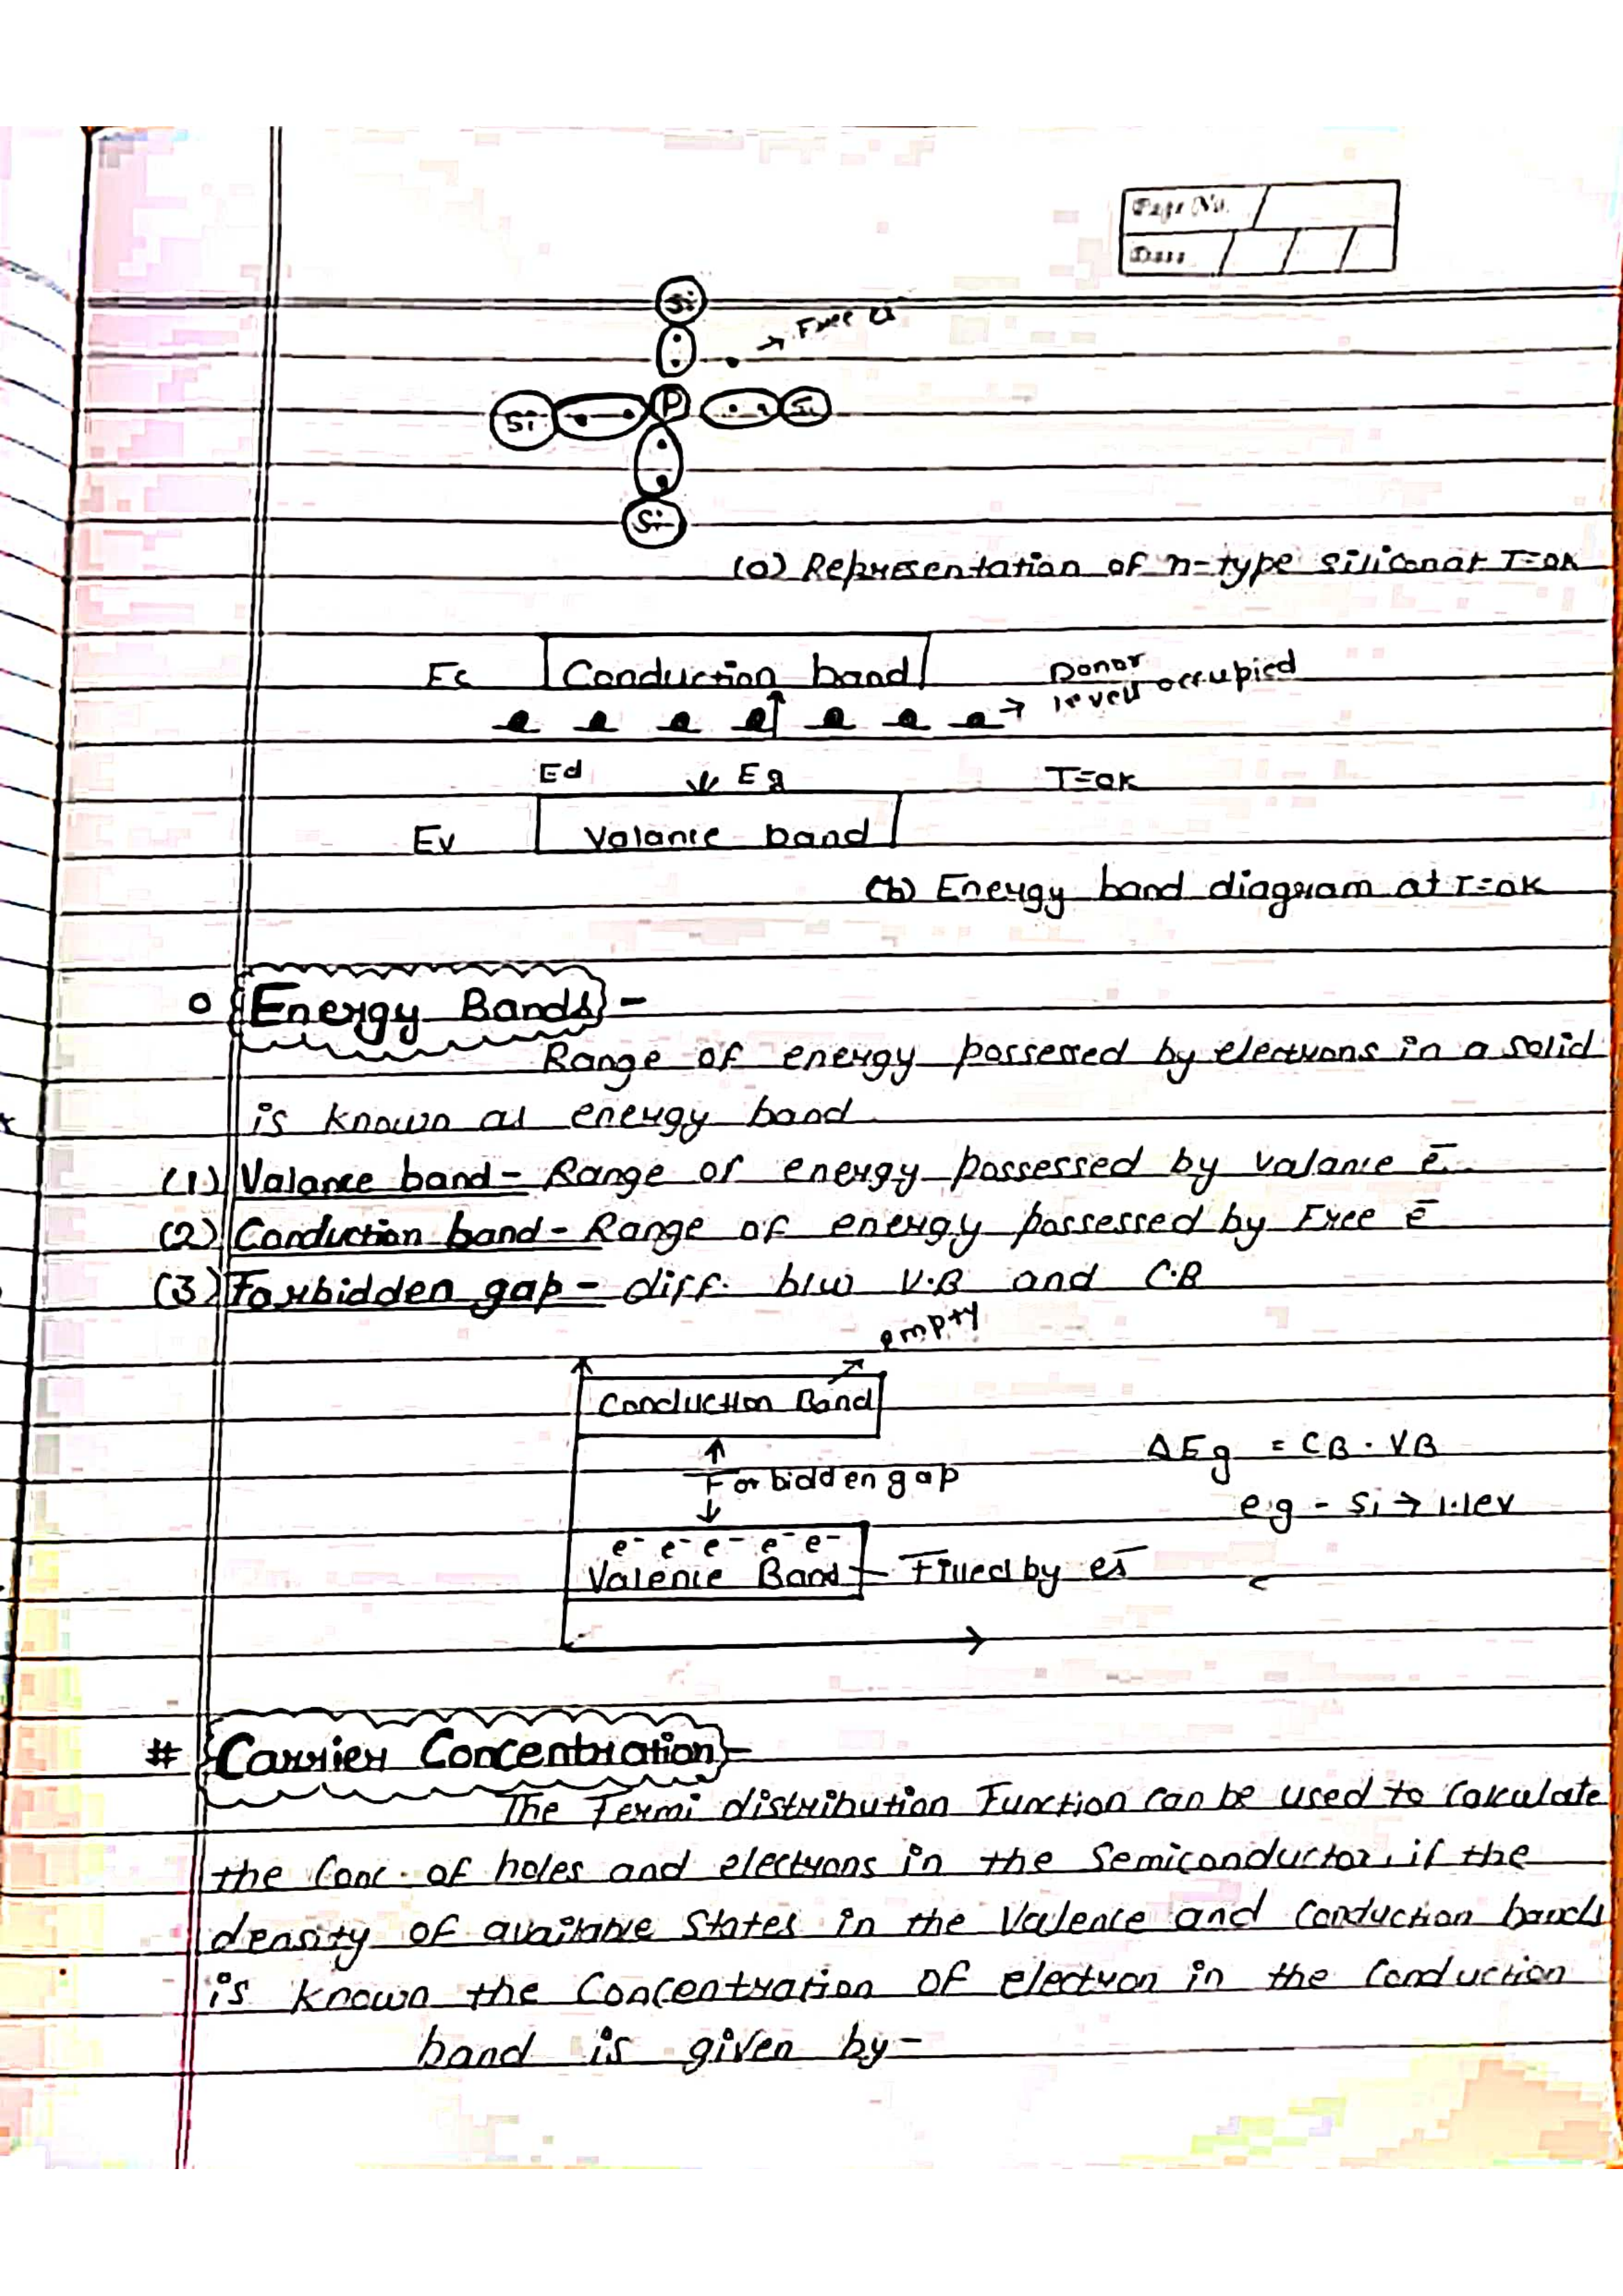 Page No.
Date
Si
Free es
Si P Si
Si
(a) Representation of n-type silicon at T=0K
Ec Conduction band Donor
levell occupied
Ed Eg T=0K
Ev Valance band
(b) Energy band diagram at T=0K
Energy Bands -
Range of energy possessed by electrons in a solid
is known as energy band
(1) Valance band - Range of energy possessed by valance e-
(2) Conduction band - Range of energy possessed by Free e-
(3) Forbidden gap - diff. b/w V.B and C.B
empty
Conduction Band
ΔEg = CB - VB
Forbidden gap
e.g - Si → 1.1ev
e- e- e- e- e-
Valence Band - Filled by es-
# Carrier Concentration -
The Fermi distribution Function can be used to Calculate
the Conc. of holes and electrons in the Semiconductor, if the
density of available States in the Valence and Conduction bands
is known the Concentration of electron in the Conduction
band is given by -